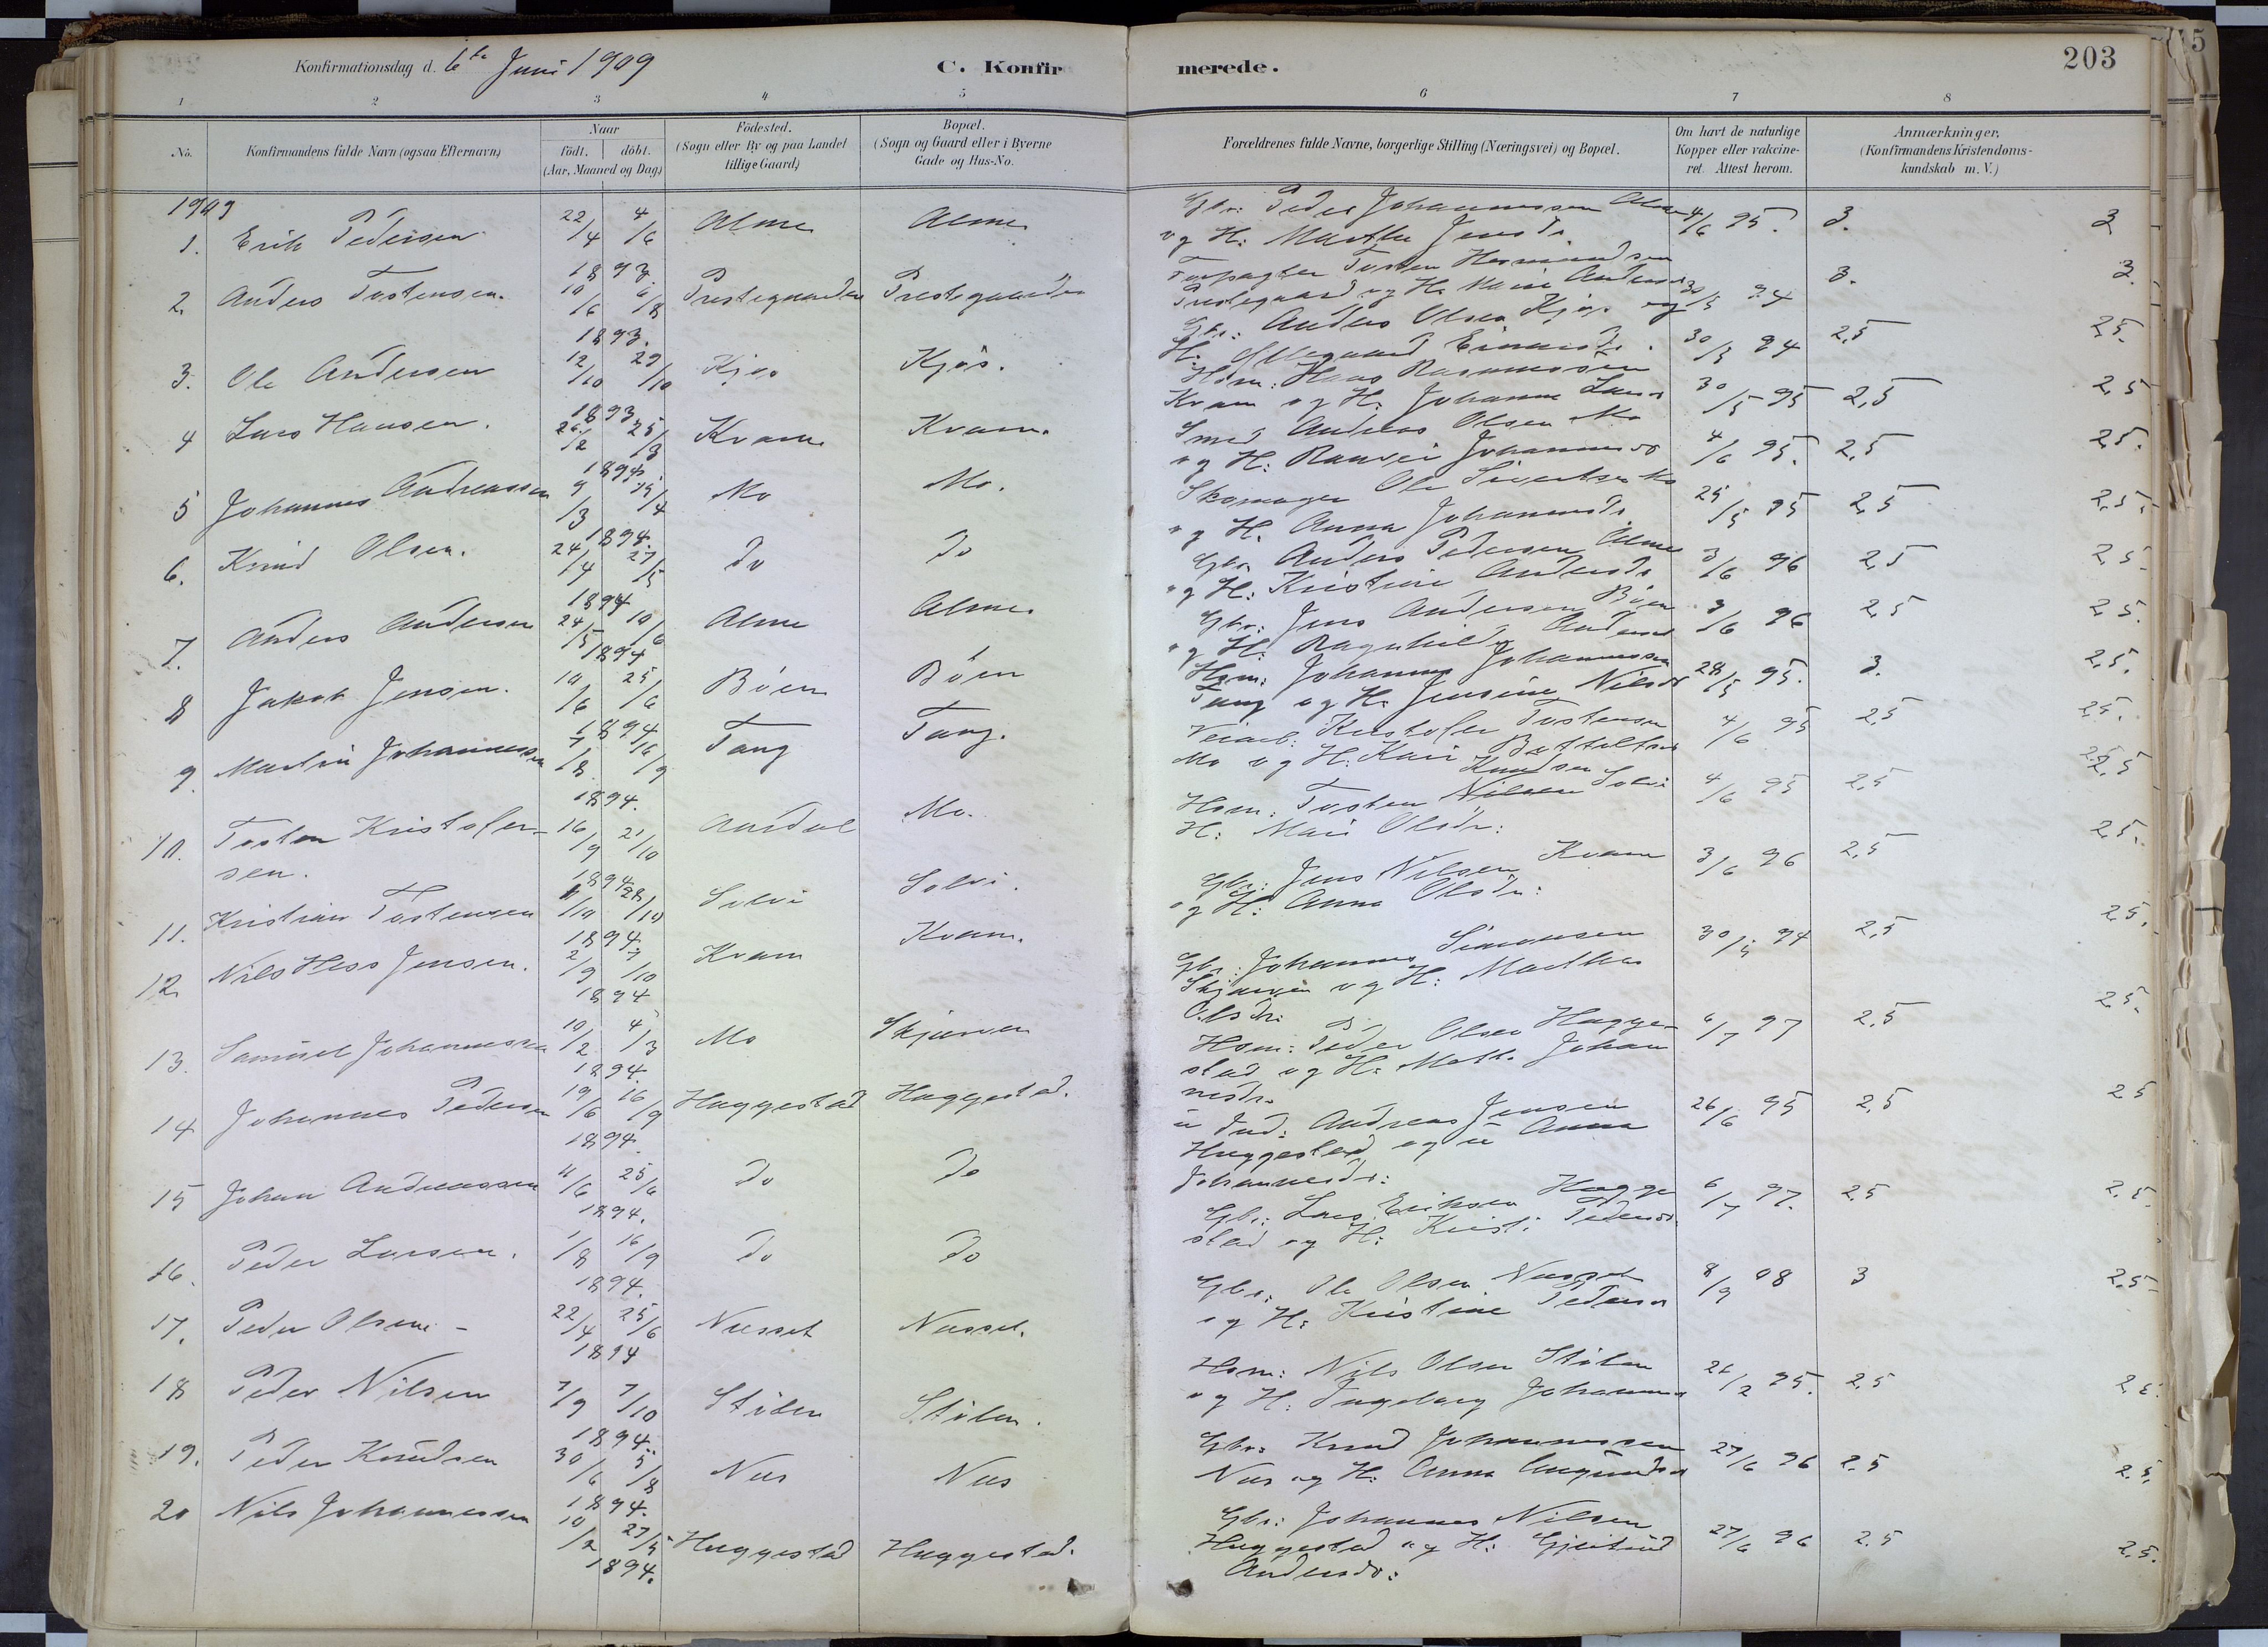 Konfirmationsdag d. 6te Juni 1909 C. Konfirmerede. 203
1 2 3 4 5 6 7 8
No. Konfirmandens fulde Navn (ogsaa Efternavn) Naar Födt. döbt. (Aar, Maaned og Dag.) Födested. (Sogn eller By og paa Landet tillige Gaard.) Bopæl. (Sogn og Gaard eller i Byerne Gade og Hus-No. Forældrenes fulde Navne, borgerlige Stilling (Næringsvei) og Bopæl. Om havt de naturlige Kopper eller vakcineret. Attest herom. Anmærkninger. (Konfirmandens Kristendomskundskab m. V.)
1909
1. Erik Pedersen 22/4 4/6 1893 Alme Alme Gbr: Peder Johannessen Alme og H: Marthe Jensdr. 4/6 95. 3. 3
2. Anders Tostensen. 10/6 6/8 1893. Prestegaarden Prestegaarden Tosten Hermundsen Prestegaard og H. Anders 30/5 94 3. 3.
3. Ole Andersen 12/10 29/10 1893 Kjøs Kjøs. Gbr: Anders Olsen Kjøs og H. 30/5 94 2,5 25.
4 Lars Hansen. 26/2 25/3 1894. Kvam Kvam. Hsm: Hans Rasmussen Kvam og H: Johanne Larsd 30/5 95 2,5 2,5
5 Johannes Andreassen 9/3 15/4 1894. Mo Mo. Smed Andreas Olsen Mo og H: Johannesd 4/6 95. 2,5 25.
6. Knud Olsen. 24/4 27/5 1894 do do Skomager Ole Sivertsen Mo og H. Anna Johannesdr. 25/5 95 2,5 2,5.
7. Anders Andersen 24/5 10/6 1894 Alme Alme Gbr. Anders Pedersen Alme og H: Kristine Andersdr 3/6 96 2,5 2,5
8 Jakob Jensen. 10/6 25/6 1894 Bøen Bøen Gbr: Jens Andersen Bøen og H: Ragnhild Andersd 3/6 96 2,5 25.
9. Martin Johannessen 7/8 16/9 1894. Tang Tang. Hsm: Johannes Johannessen Tang og H. Jensine Nilsdr 28/5 95. 3. 2,5.
10. Tosten Kristofersen. 16/9 21/10 1894 Aurdal Mo. Veiarb: Kristofer Tostensen Mo og H: Kari 4/6 95 2,5 25.
11. Kristian Tostensen /10 28/10 1894. Solvi Solvi. Hsm: Tosten Knudsen Solvi H: Mari Olsdr: 4/6 95 2,5 2,5
12. Nils Hess Jensen. 2/9 7/10 1894 Kvam Kvam. Gbr: Jens Nilsen Kvam og H: Anna Olsdr: 3/6 96 2,5 25.
13. Samuel Johannessen 10/2 4/3 1894. Mo Skjerven Gbr: Johannes Simonsen Skjerven og H: Marthe Olsdr: 30/5 94 2,5 25.
14 Johannes Pedersen 19/6 16/9 1894. Huggestad Huggestad. Hsm: Peder Olsen Huggestad og H. Johannesdr. 6/7 97 2,5 2,5.
15 Johan Andreassen 11/6 25/6 1894. do do Andreas Jensen Huggestad og Anna Johannesdr: 26/6 95 2,5 25
16. Peder Larsen. 1/8 16/9 1894. do do Gbr: Lars Eriksen Huggestad og H: Kristi Pedersd. 6/7 97. 25 2,5.
17. Peder Olsen - 22/4 25/6 1894 Nusset Nusset. Gbr. Ole Olsen Nusset og H: Kristine Pedersd 8/9 08 3 2,5
18 Peder Nilsen 7/9 7/10 1894. Stølen Stølen. Hsm: Nils Olsen Stølen og H: Ingeborg Johannesd 26/2 95. 2,5 2,5.
19. Peder Knudsen 30/6 5/8 1894. Nus Nus Gbr: Knud Johannessen Nus og H: Anna Amundsd 27/6 96 2.5 2,5.
20 Nils Johannessen 10/2 27/5 1894. Huggestad Huggestad. Gbr: Johannes Nilsen Huggestad og H: Gjertrud Andersdr: 27/6 96 2.5 2,5.